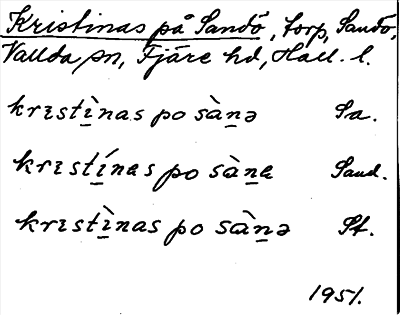 Kristinas på Sandö, torp, Sandö,
Vallda sn, Fjäre hd, Hall. l.
krɪstì̱nas po sàṉə Sa.
krɪstí̱nas po sàṉa Sand.
krɪstì̱nas po sàṉə St.
1951.